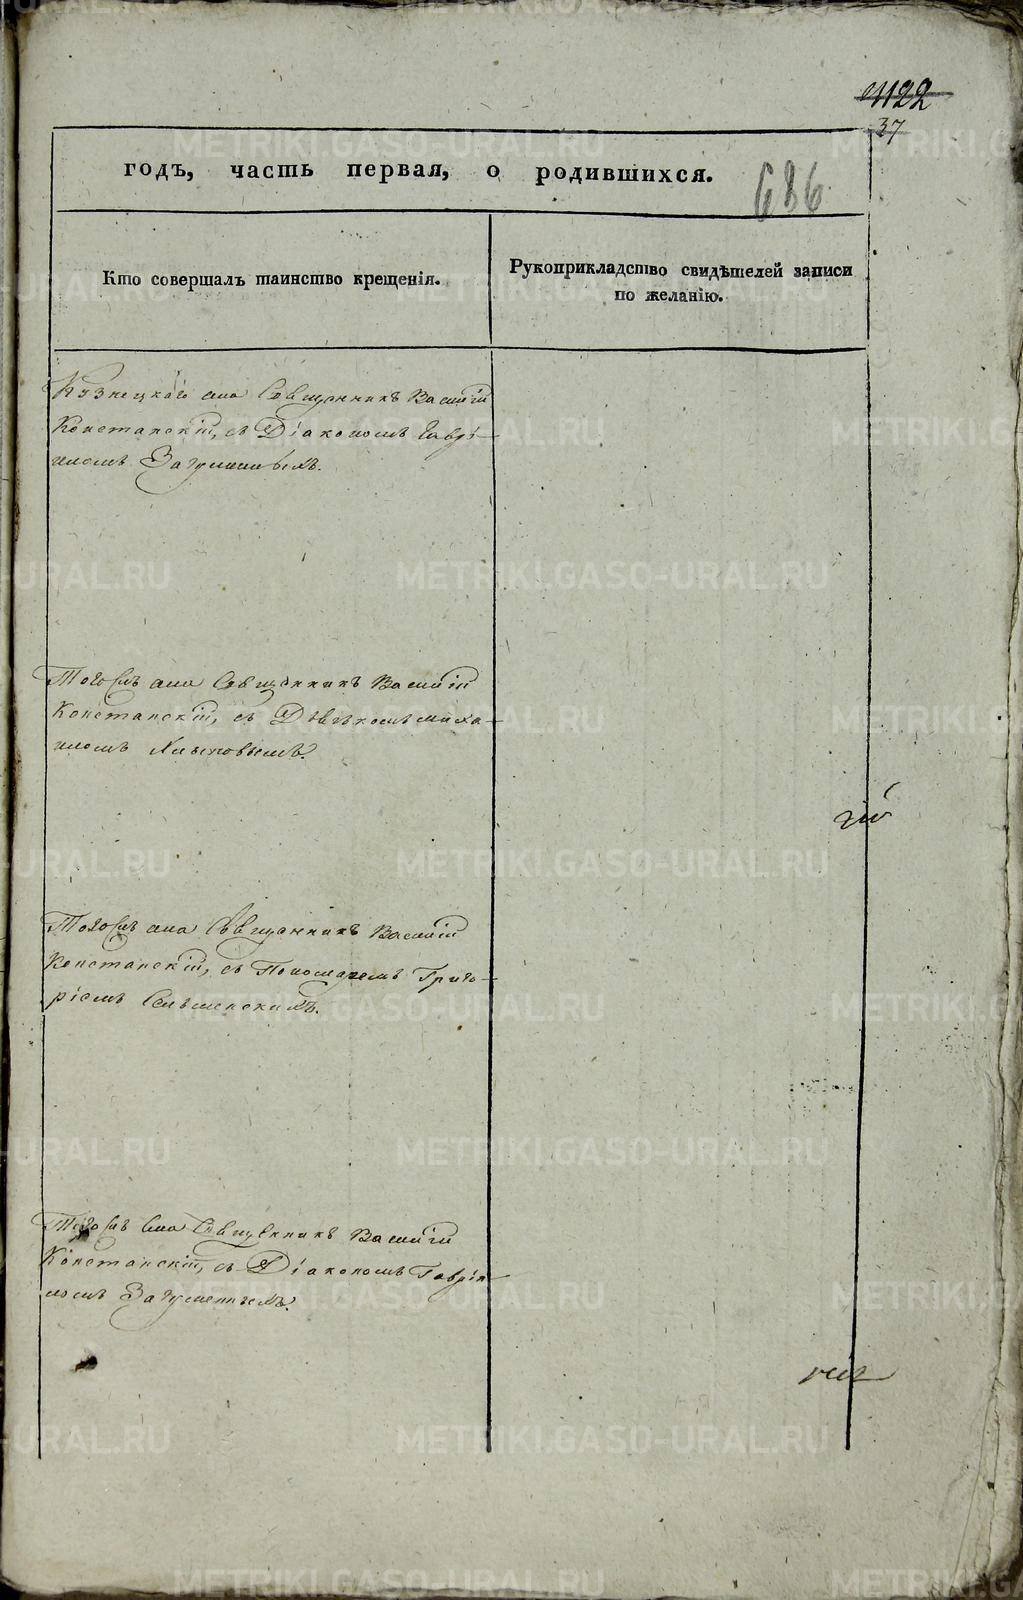 1122
37
годъ, часть первая, о родившихся.
686
Кто совершалъ таинство крещенія.
Рукоприкладство свидѣтелей записи
по желанію.
Кузнецкаго Священникъ Василій
Констанскій, съ Діакономъ Гаврі-
иломъ Загуменнымъ.
Тогожъ Священникъ Василій
Констанскій, съ Дьячкомъ Миха-
иломъ
Тогожъ Священникъ Василій
Констанскій, съ Пономаремъ Григо-
ріемъ
Тогожъ Священникъ Василій
Констанскій, съ Діакономъ Гаврій-
ломъ Загуменнымъ.
METRIKI.GASO-URAL.RU